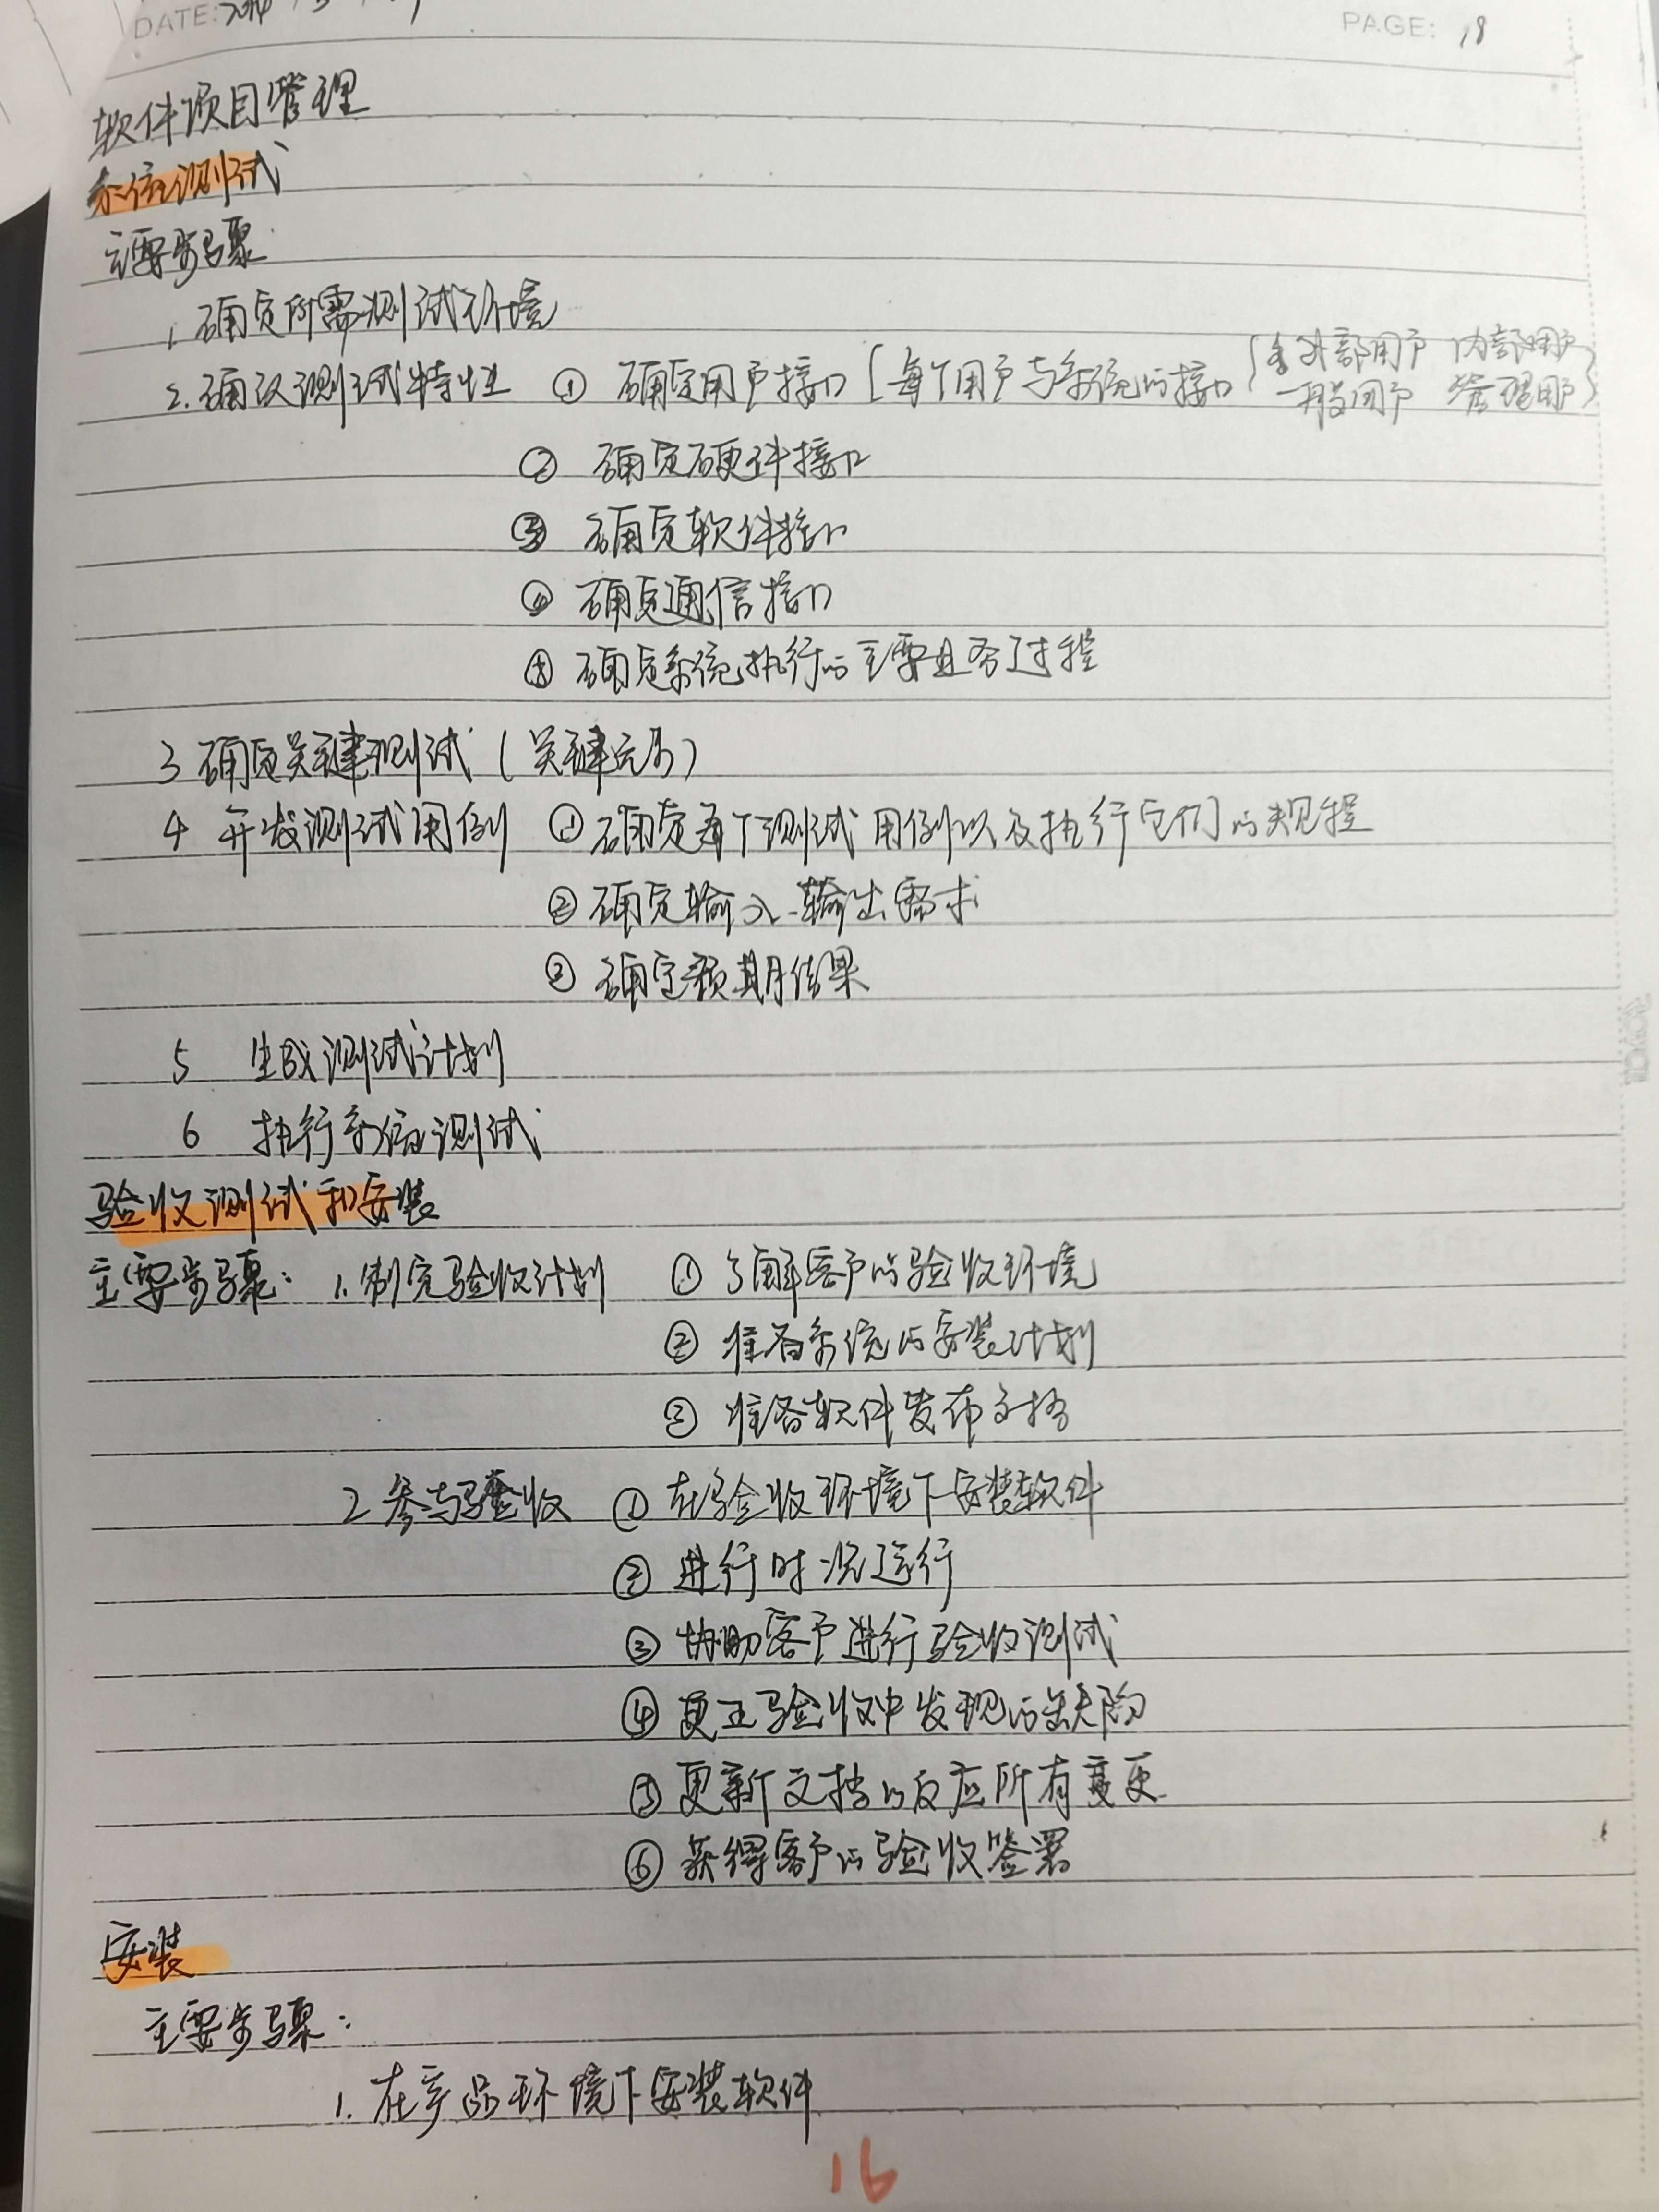 DATE: 2024 / 5 /
PAGE: 18
软件项目管理
系统测试
主要步骤:
1. 确定所需测试环境
2. 确认测试特性 ① 确定用户接口 [每个用户与系统的接口 {含外部用户 内部用户
一般用户 管理用户}
② 确定硬件接口
③ 确定软件接口
④ 确定通信接口
⑤ 确定系统执行的主要业务过程
3 确定关键测试 (关键元素)
4 开发测试用例 ① 确定每个测试用例以及执行它们的规程
② 确定输入、输出需求
③ 确定预期结果
5 生成测试计划
6 执行系统测试
验收测试和安装
主要步骤: 1. 制定验收计划 ① 了解客户的验收环境
② 准备系统的安装计划
③ 准备软件发布文档
2 参与验收 ① 在验收环境下安装软件
② 进行时况运行
③ 协助客户进行验收测试
④ 更正验收中发现的缺陷
⑤ 更新文档以反应所有变更
⑥ 获得客户的验收签署
安装
主要步骤:
1. 在产品环境下安装软件
16